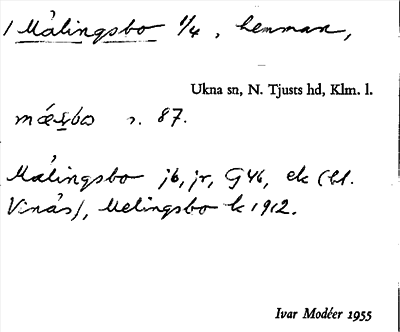 / Målingsbo 1/4, hemman,
Ukna sn, N. Tjusts hd, Klm. l.
s. 87.
Målingsbo jb, jr, G46, ek (bl.
Vinäs), Melingsbo k 1912.
Ivar Modéer 1955